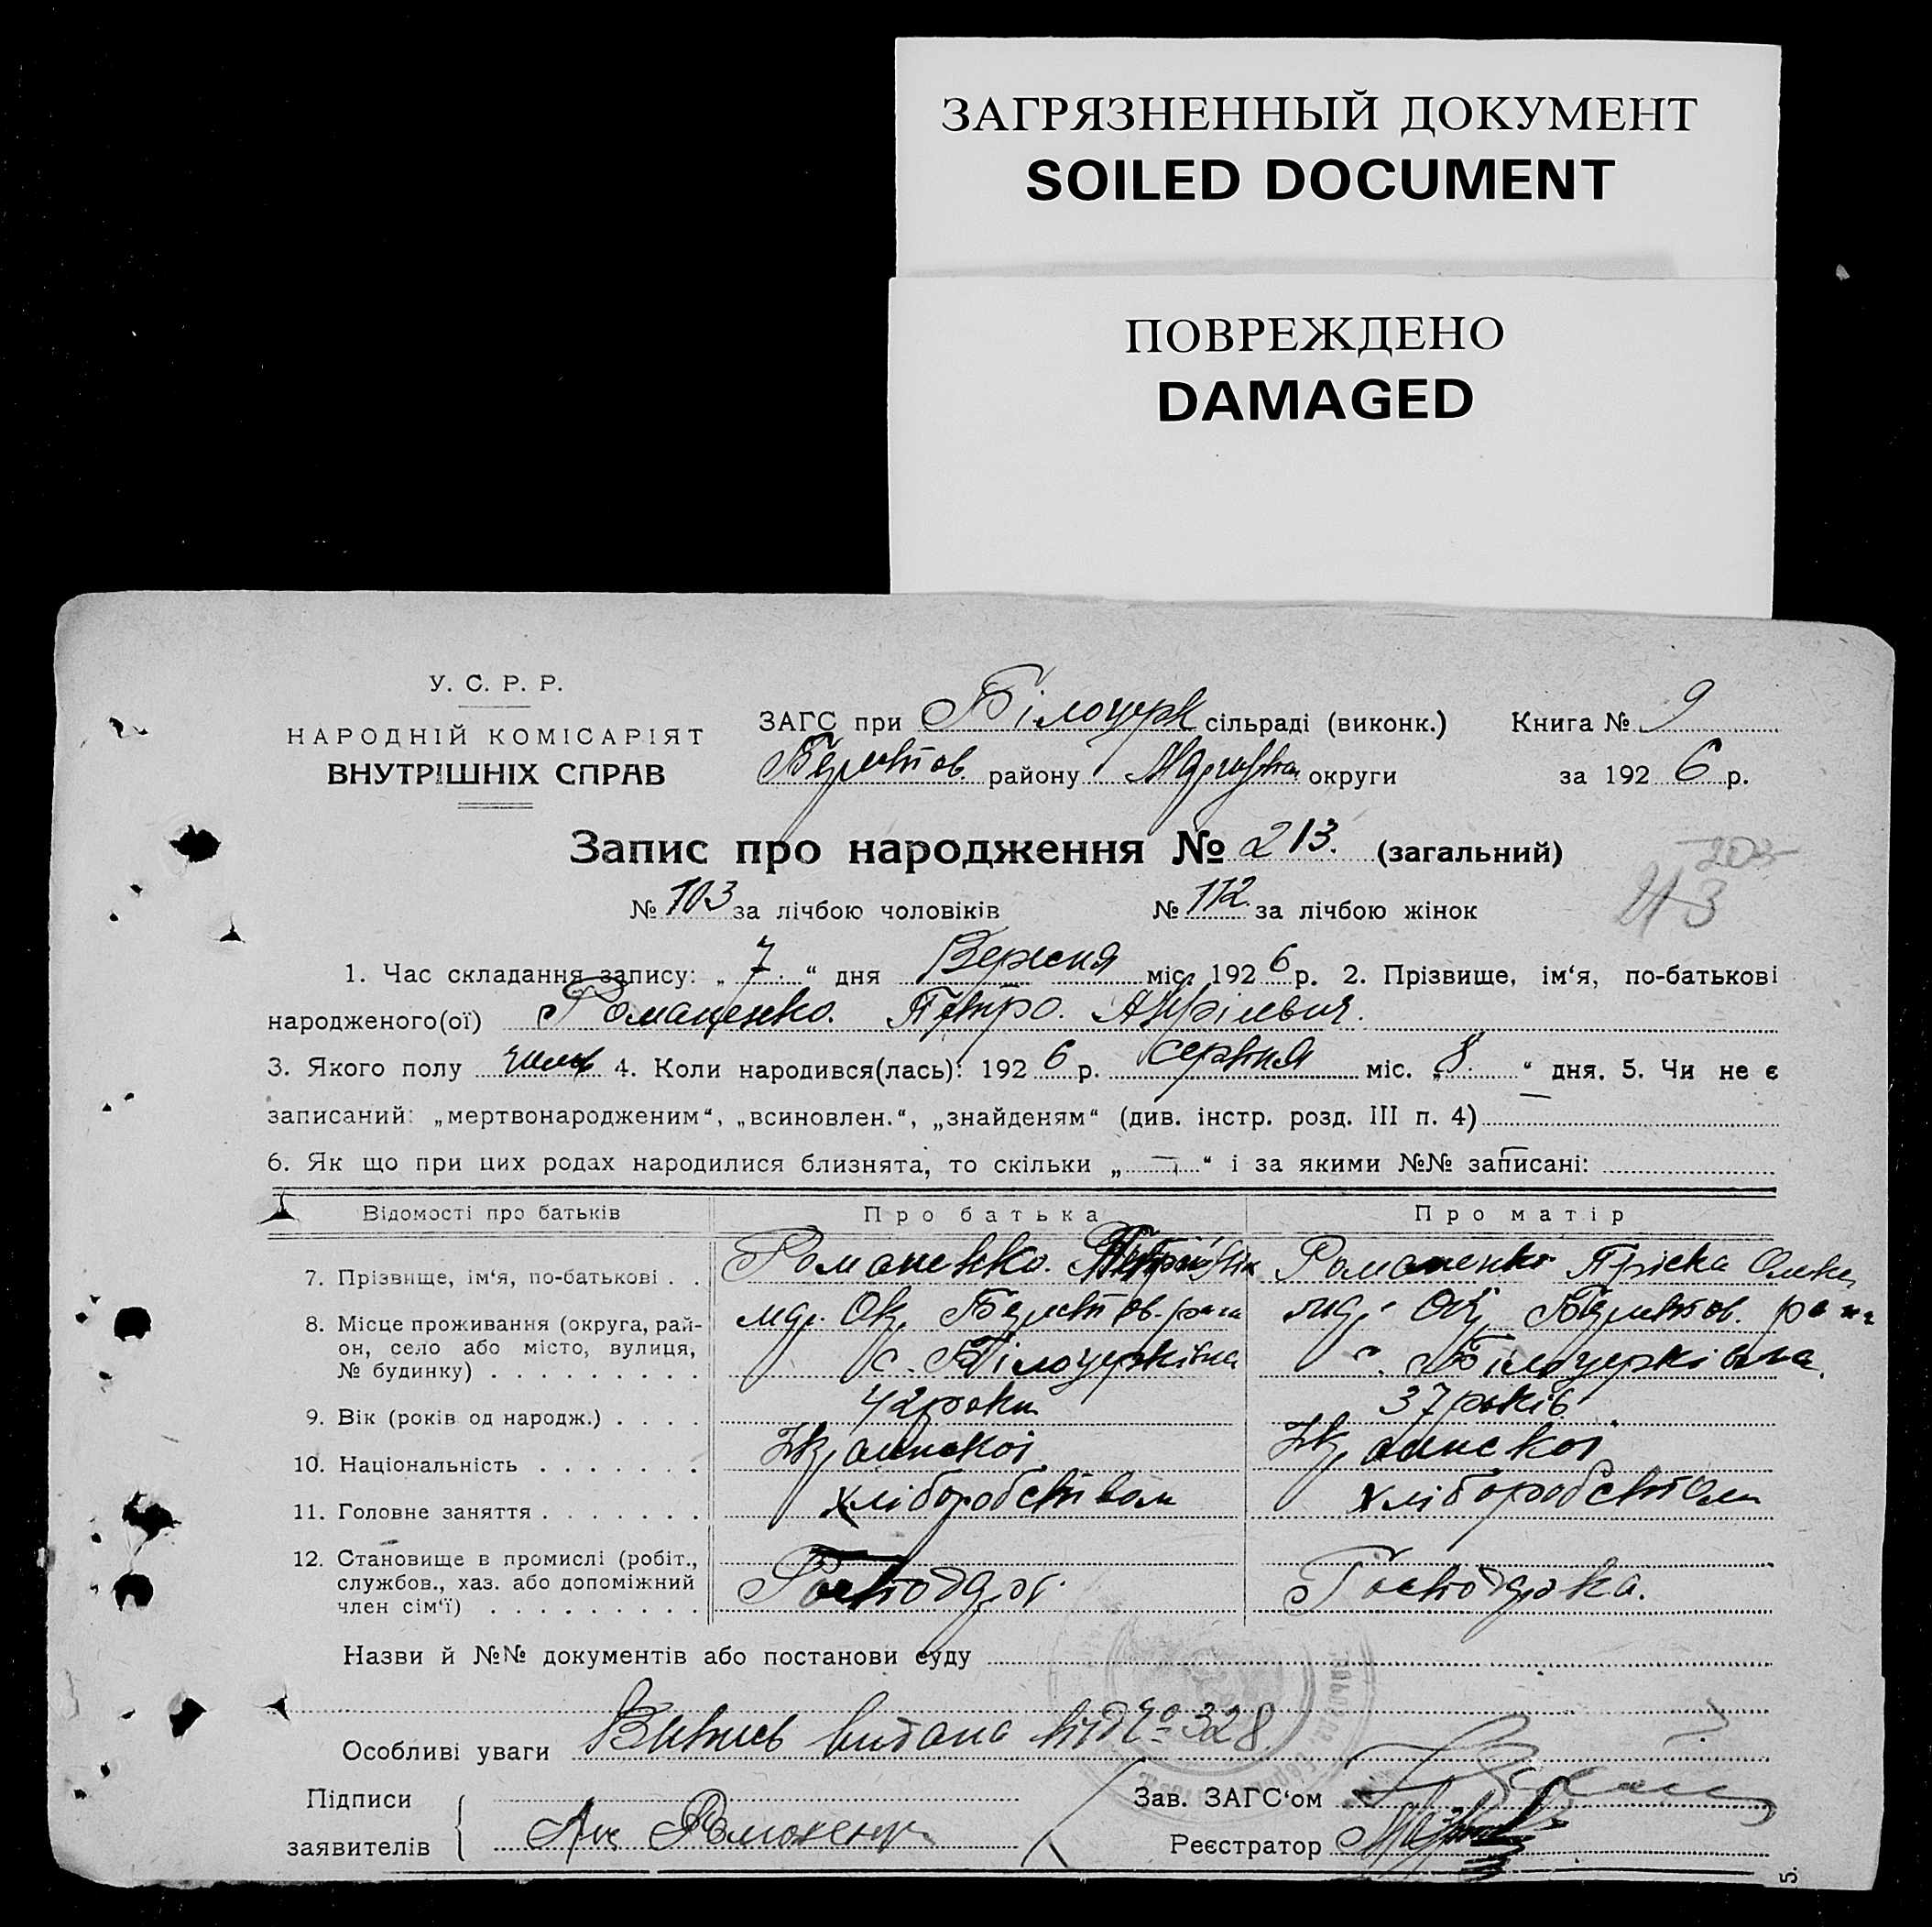 ЗАГРЯЗНЕННЫЙ ДОКУМЕНТ
SOILED DOCUMENT
ПОВРЕЖДЕНО
DAMAGED
У. С. Р. Р.
НАРОДНІЙ КОМІСАРІЯТ
ВНУТРІШНІХ СПРАВ
ЗАГС при Білоцерк сільраді (виконк.) Книга № 9
району округи за 1926 р.
Запис про народження № 213. (загальний)
203
43
№ 103 за лічбою чоловіків № 112 за лічбою жінок
1. Час складання запису: „7“ дня Вересня міс. 1926 р. 2. Прізвище, ім‘я, по-батькові
народженого(ої) Романенко. Петро.
3. Якого полу чолов 4. Коли народився(лась): 1926 р. серпня міс. „8“ дня. 5. Чи не є
записаний: „мертвонародженим“, „всиновлен.“, „знайденям“ (див. інстр. розд. III п. 4) —
6. Як що при цих родах народилися близнята, то скільки „—“ і за якими №№ записані: —
Відомості про батьків Про батька Про матір
7. Прізвище, ім‘я, по-батькові . . Романенко. Романенко Пріска Олекс
8. Місце проживання (округа, рай-
он, село або місто, вулиця,
№ будинку) . . . . . . . . . с. Білоцерківка с. Білоцерківка
9. Вік (років од народж.) . . . . 42 роки 37 років
10. Національність . . . . . . . Украинскоі Украинскоі
11. Головне заняття . . . . . . . хліборобством хліборобством
12. Становище в промислі (робіт.,
службов., хаз. або допоміжний
член сім‘ї) . . . . . . . . . Господар. Господарка.
Назви й №№ документів або постанови суду
Особливі уваги Випись видана під № 328
Підписи
заявителів Романенко
Зав. ЗАГС‘ом
Реєстратор
5.